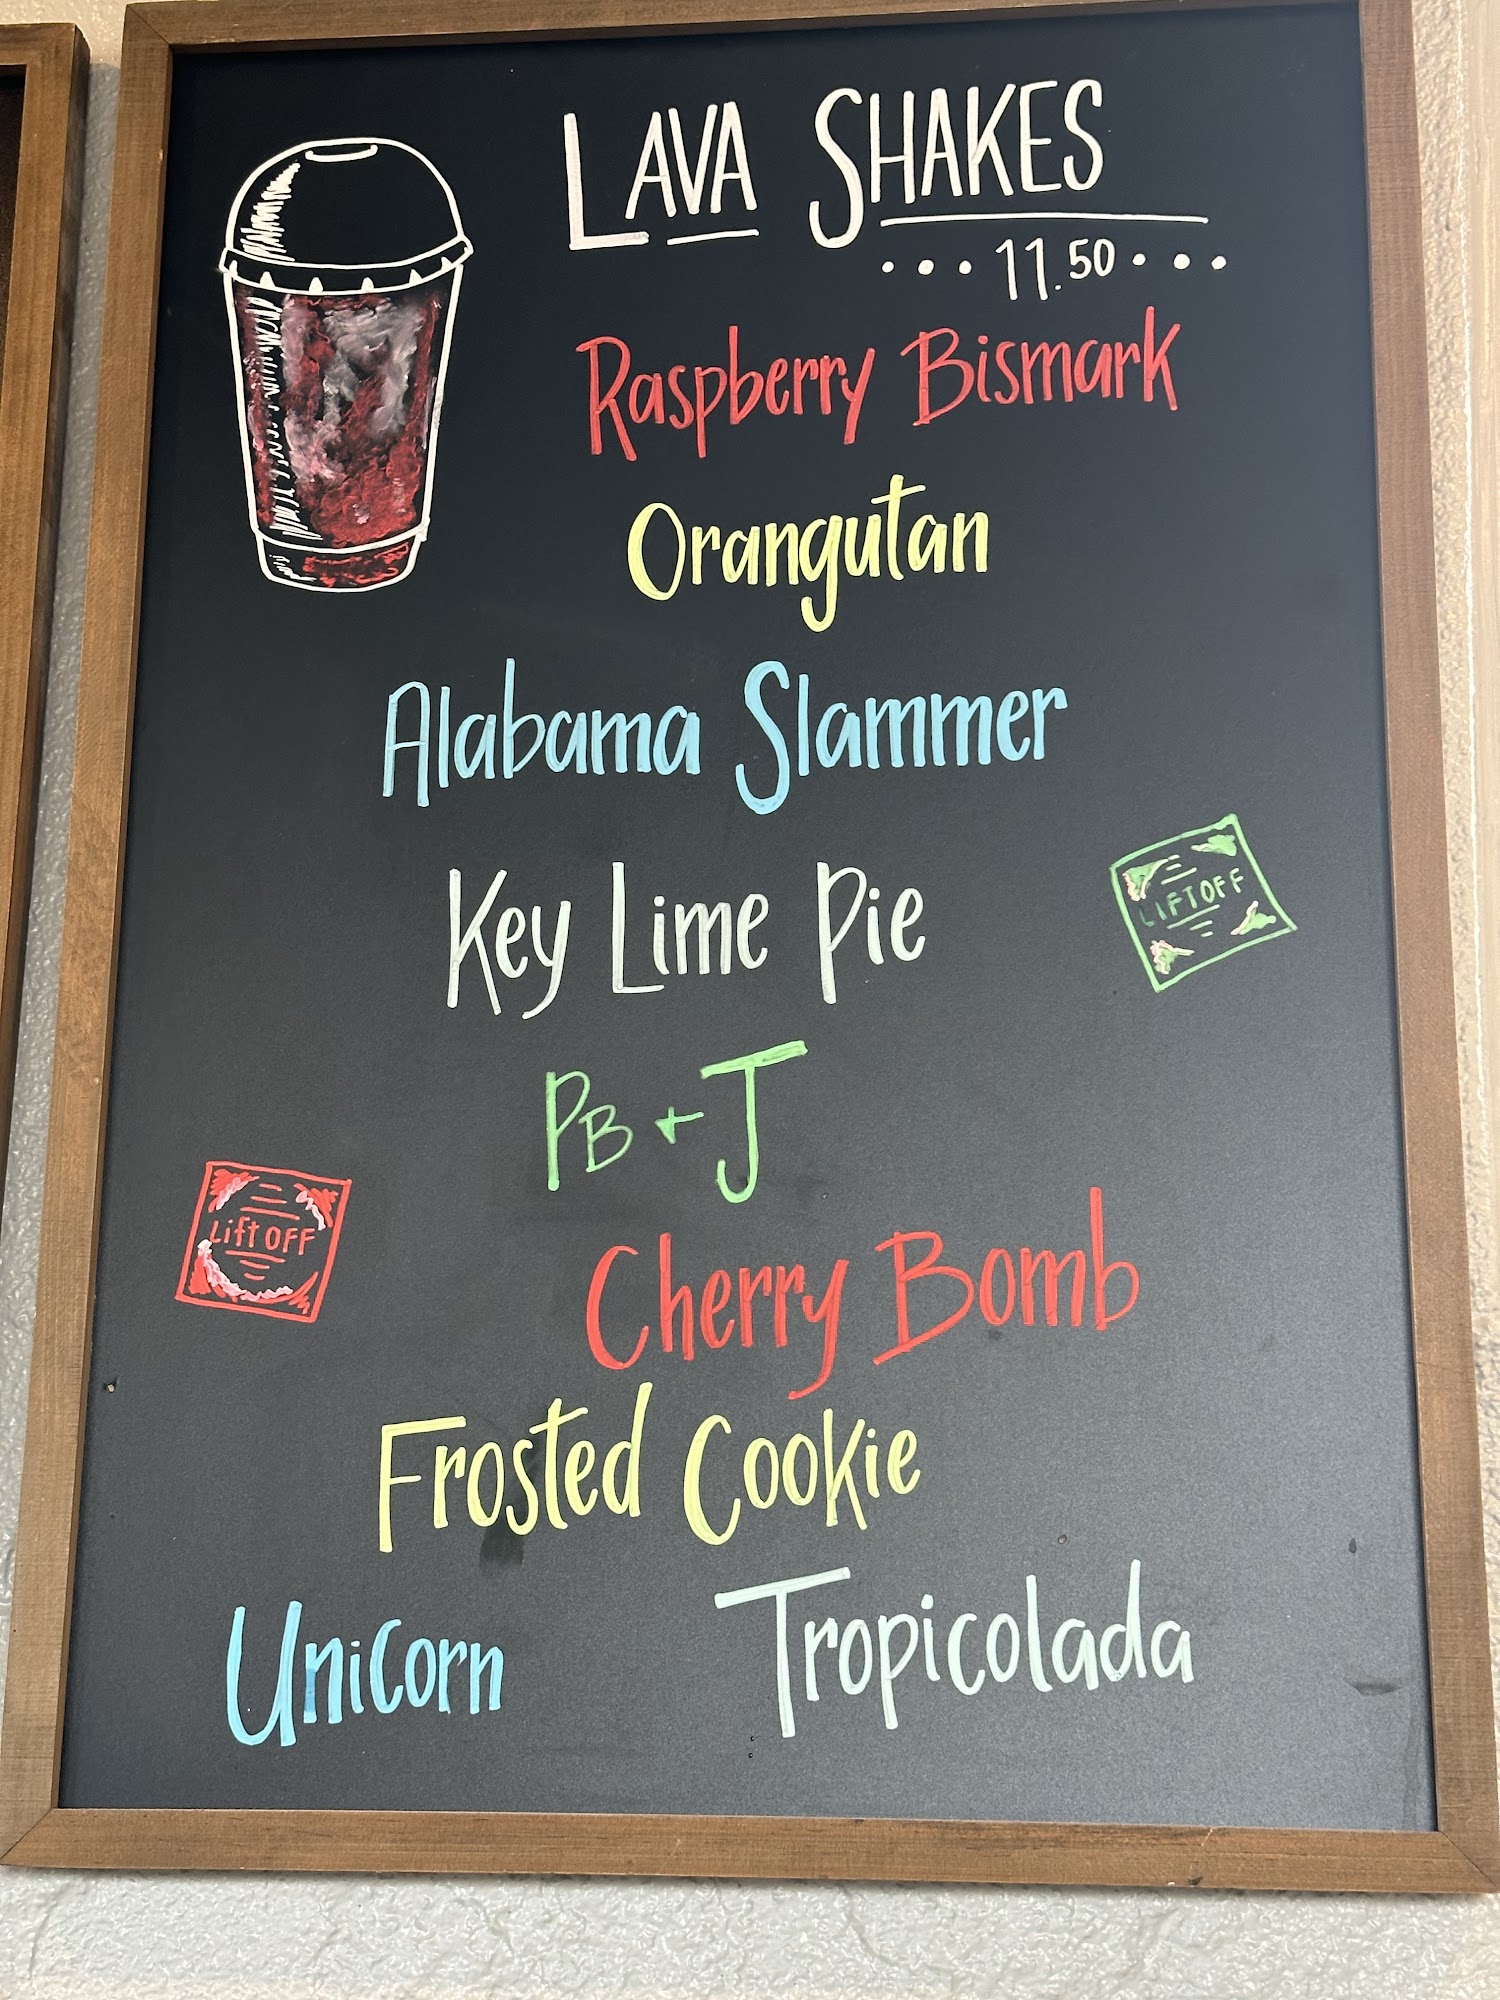 LAVA SHAKES
...11.50...
Raspberry Bismark
Orangutan
Alabama Slammer
Key Lime Pie
LIFTOFF
PB + J
Lift OFF
Cherry Bomb
Frosted Cookie
Unicorn
Tropicolada